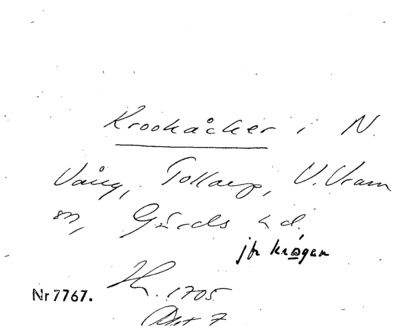 Krookåcker i N.
Vång, Tollarp, V. Vram
sn, Gärds hd.
jfr krogen
Nr 7767. 1705